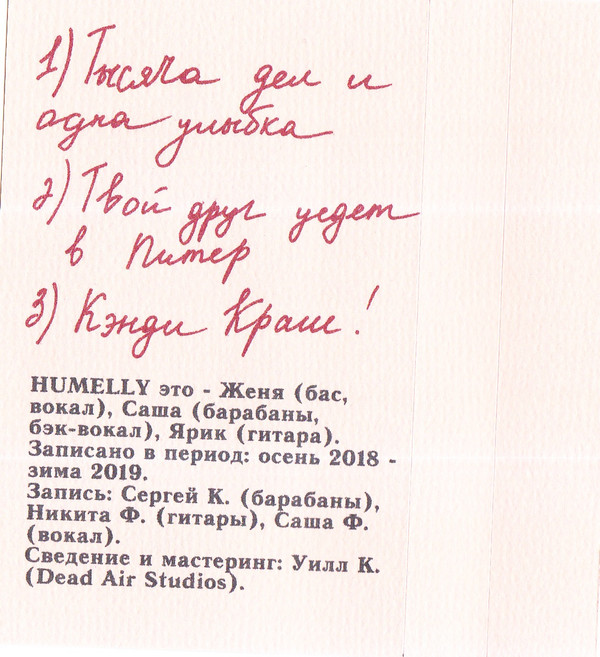 1) Тысяча дел и
одна улыбка
2) Твой друг уедет
в Питер
3) Кэнди Краш!
HUMELLY это - Женя (бас,
вокал), Саша (барабаны,
бэк-вокал), Ярик (гитара).
Записано в период: осень 2018 -
зима 2019.
Запись: Сергей К. (барабаны),
Никита Ф. (гитары), Саша Ф.
(вокал).
Сведение и мастеринг: Уилл К.
(Dead Air Studios).